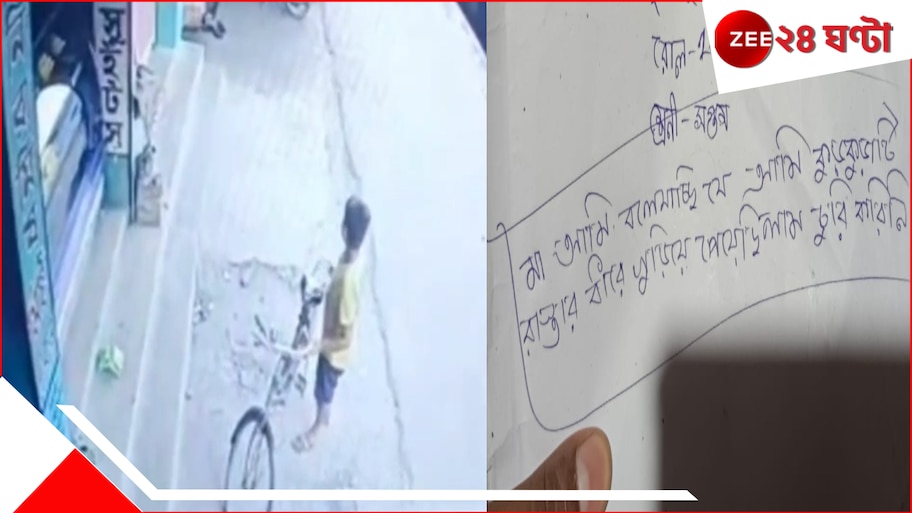 ZEE ২৪ ঘণ্টা
রোল-২
শ্রেনী - সপ্তম
মা আমি বলেযাচ্ছি যে আমি কুড়কুড়াটি
রাস্তার ধারে খুড়িয়ে পেয়েছিলাম চুরি করিনি